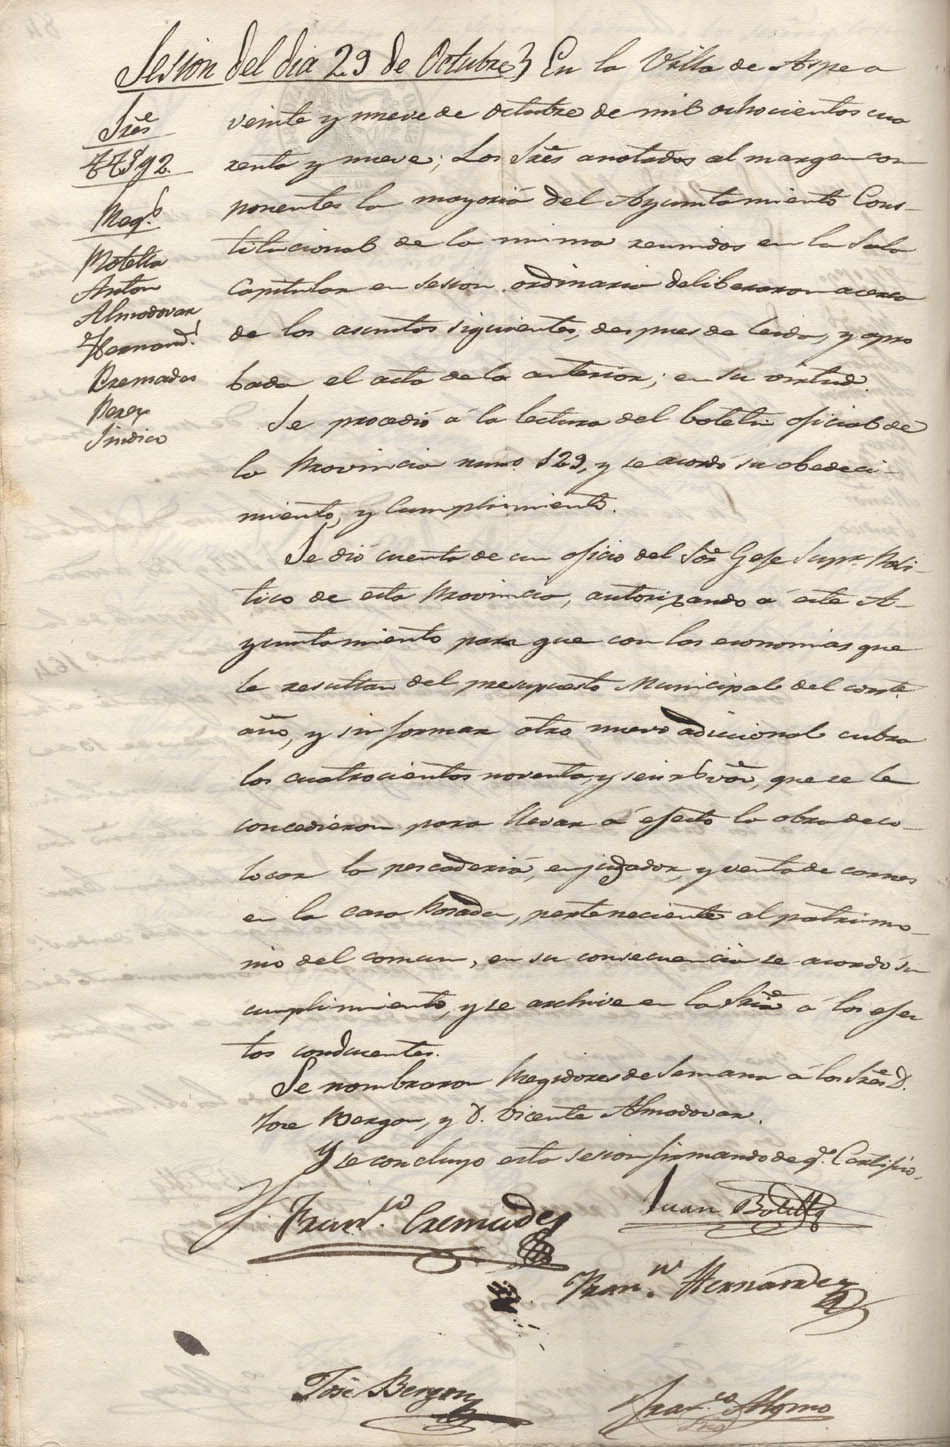 Sesion del dia 29 de Octubre} En la Villa de Aspe a
Sres
veinte y nueve de octubre de mil ochocientos cua
renta y nueve; Los Sres anotados al margen com
ponentes la mayoria del Ayuntamiento Cons-
titucional de la misma reunidos en la Sala
Capitular en sesion ordinaria deliberaron acerca
de los asuntos siguientes, despues de leida, y apro
bada el acta de la anterior; en su virtud.
Reg.s
Botella
Anton
Almodovar
Hernand.z
Cremades
Perez
Sindico
Se procedió á la lectura del boletin oficial de
la Provincia num.o 129, y se acordó su obedeci-
miento, y Cumplimiento.
Se dió cuenta de un oficio del Sor Gefe Supr. Poli-
tico de esta Provincia, autorizando á este A-
yuntamiento para que con las economias que
le resultan del presupuesto Municipal del corrte.
año, y sin formar otro nuevo adicional cubra
los cuatrocientos noventa, y seis rs von, que se le
concedieron para llevar á efecto la obra de co-
locar la pescaderia, enjugador, y venta de carnes
en la casa Posada, perteneciente al patrimo-
nio del comun, en su consecuencia se acordó su
cumplimiento, y se archive en la Sria á los efec
tos conducentes.
Se nombraron Regidores de Semana á los Sres D.
Jose Bergon, y D. Vicente Almodovar.
Y se concluyo esta sesion firmando de q.e Certifico.
Fran.co Cremades
Juan Botella
Fran.co Hernandez
José Bergon
Fran.co Alguno
Srio